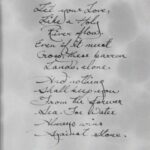 Let your Love,
Like a Holy
River flow,
Even if it must
Cross these barren
Lands, alone.
And nothing
Shall keep you
From the forever
Sea. For Water
Always wins
Against Stone.